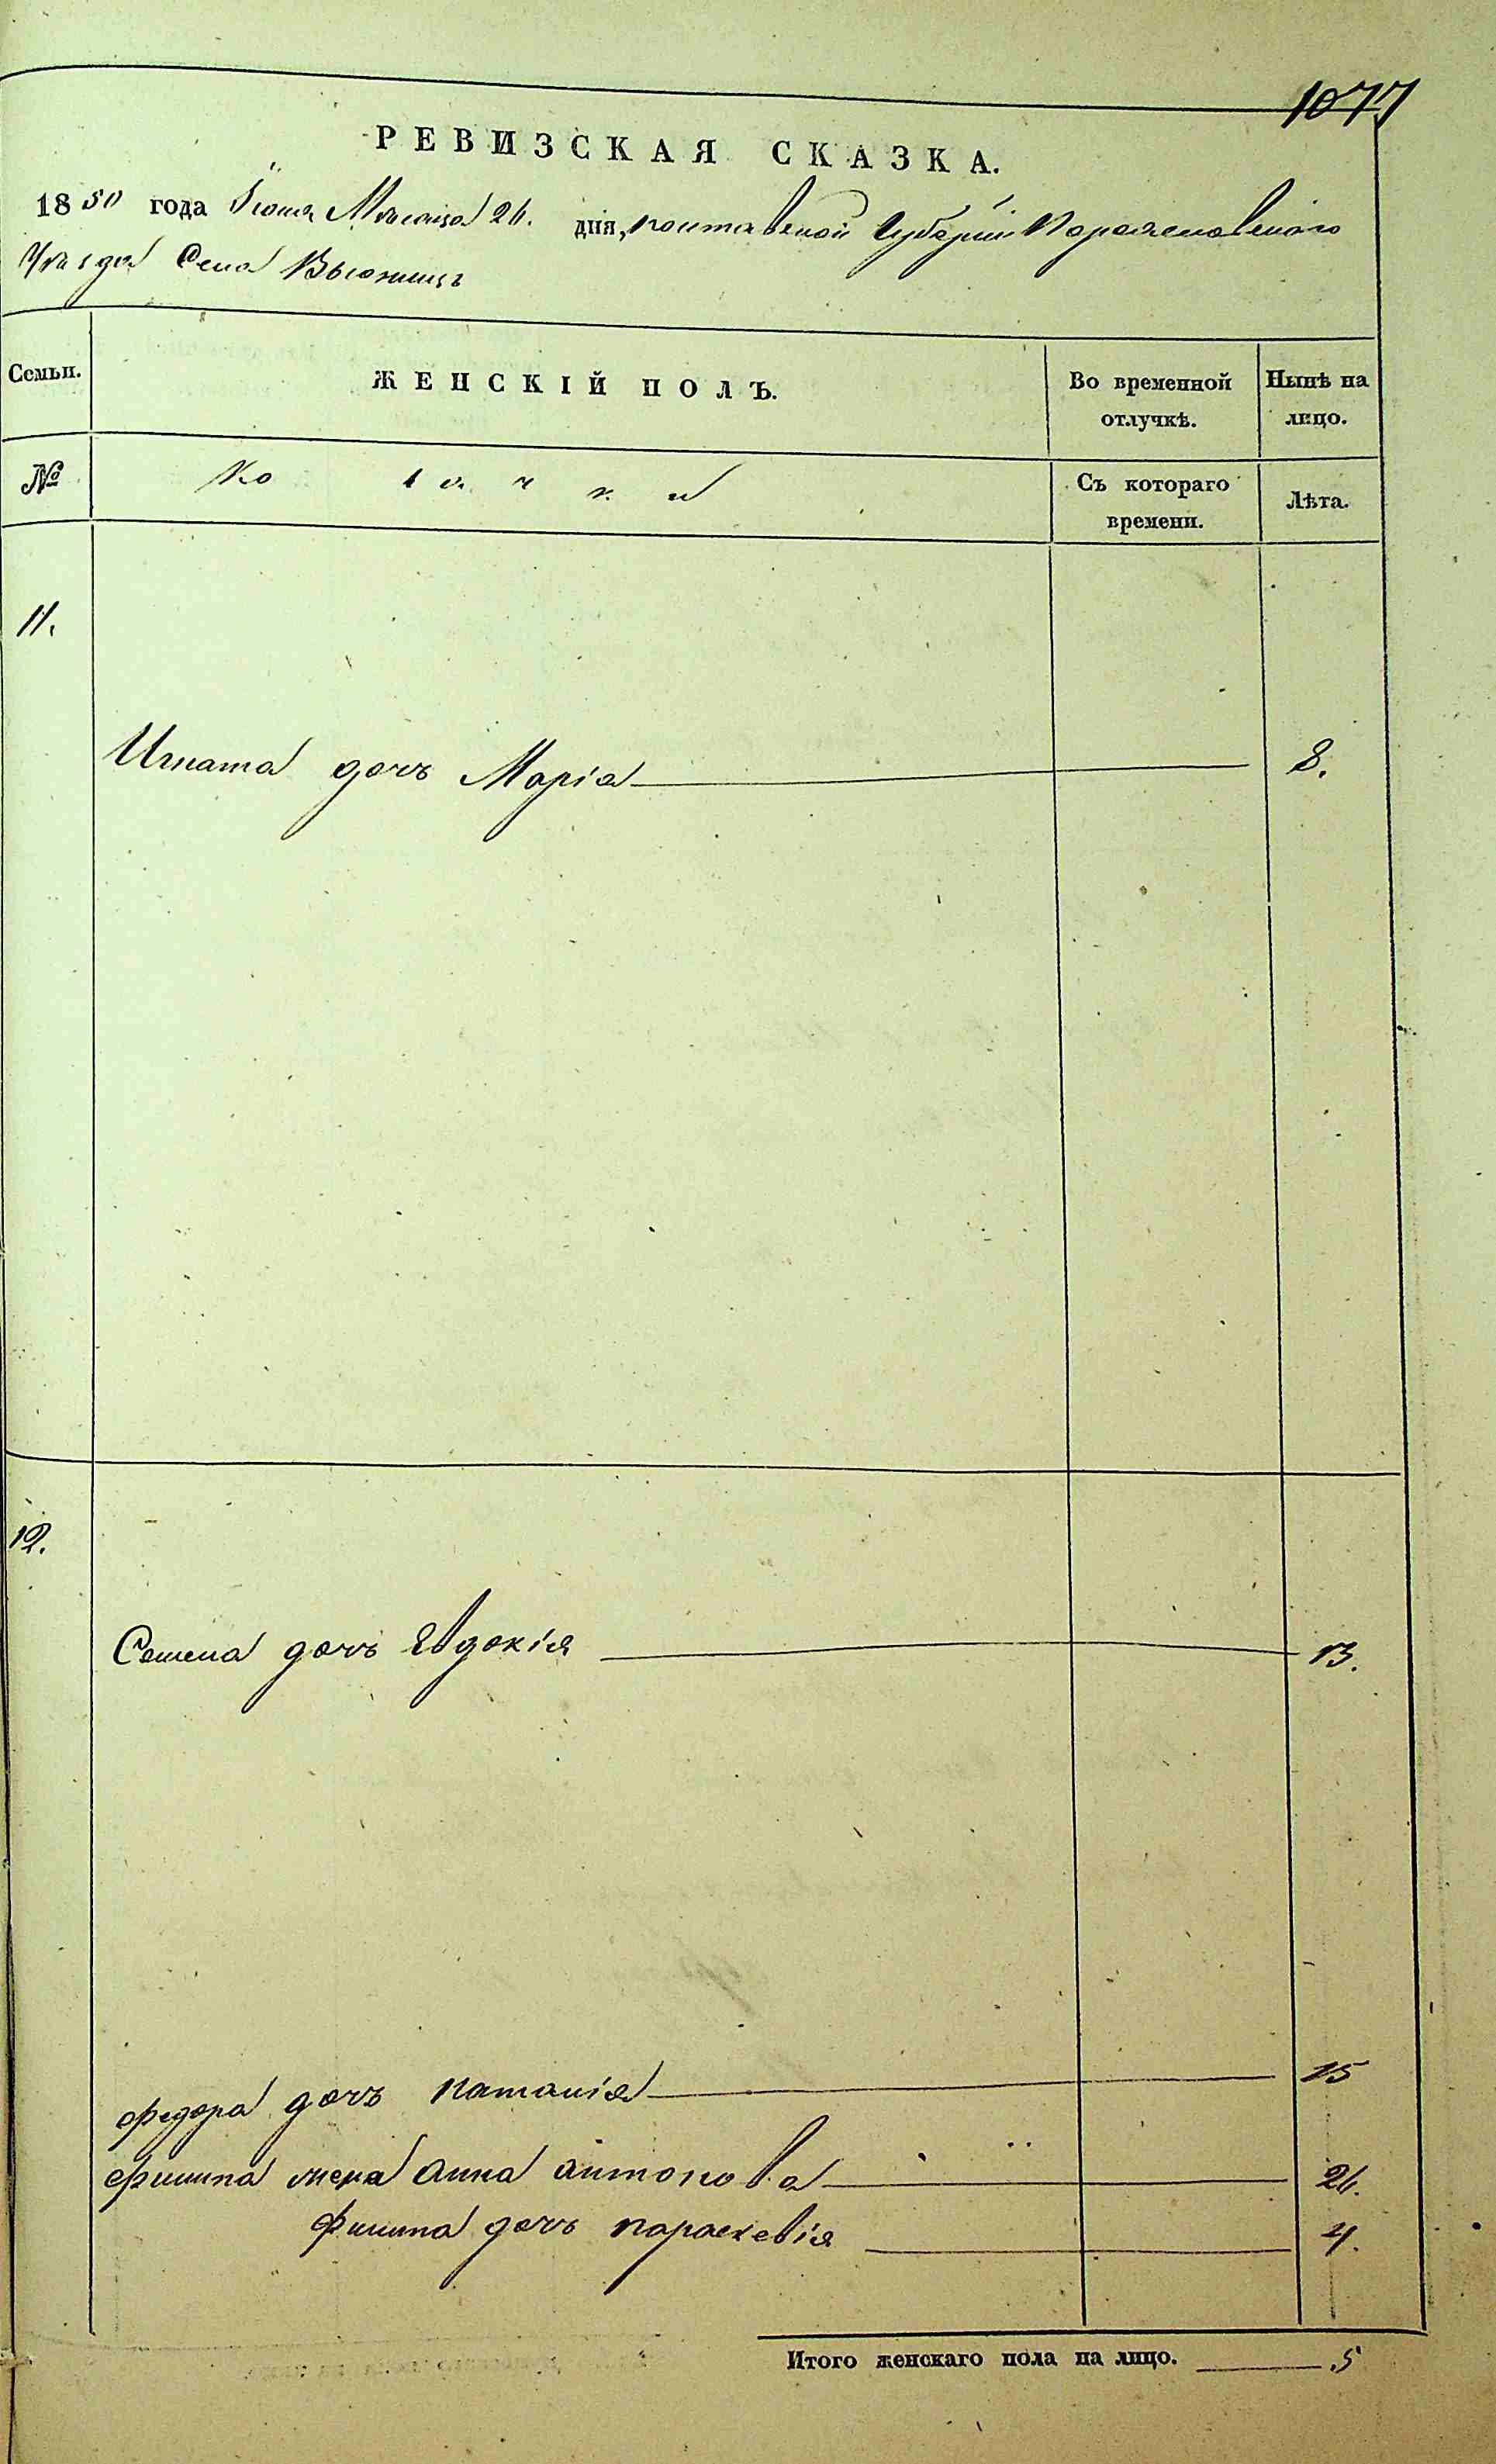 1077
РЕВИЗСКАЯ СКАЗКА.
1850 года Іюня Мѣсяца 26. дня, Полтавской Губерніи Кобелякскаго
Уѣзда Села
Семьи. ЖЕНСКІЙ ПОЛЪ. Во временной отлучкѣ. Нынѣ на лицо.
№ Козачки Съ котораго времени. Лѣта.
11.
Игната дочь Марія 8.
12.
Семена дочь Евдокія 13.
Федора дочь Наталія 15
Филипа жена Анна Антонова 26.
Филипа дочь Параскевія 4.
Итого женскаго пола на лицо. 5